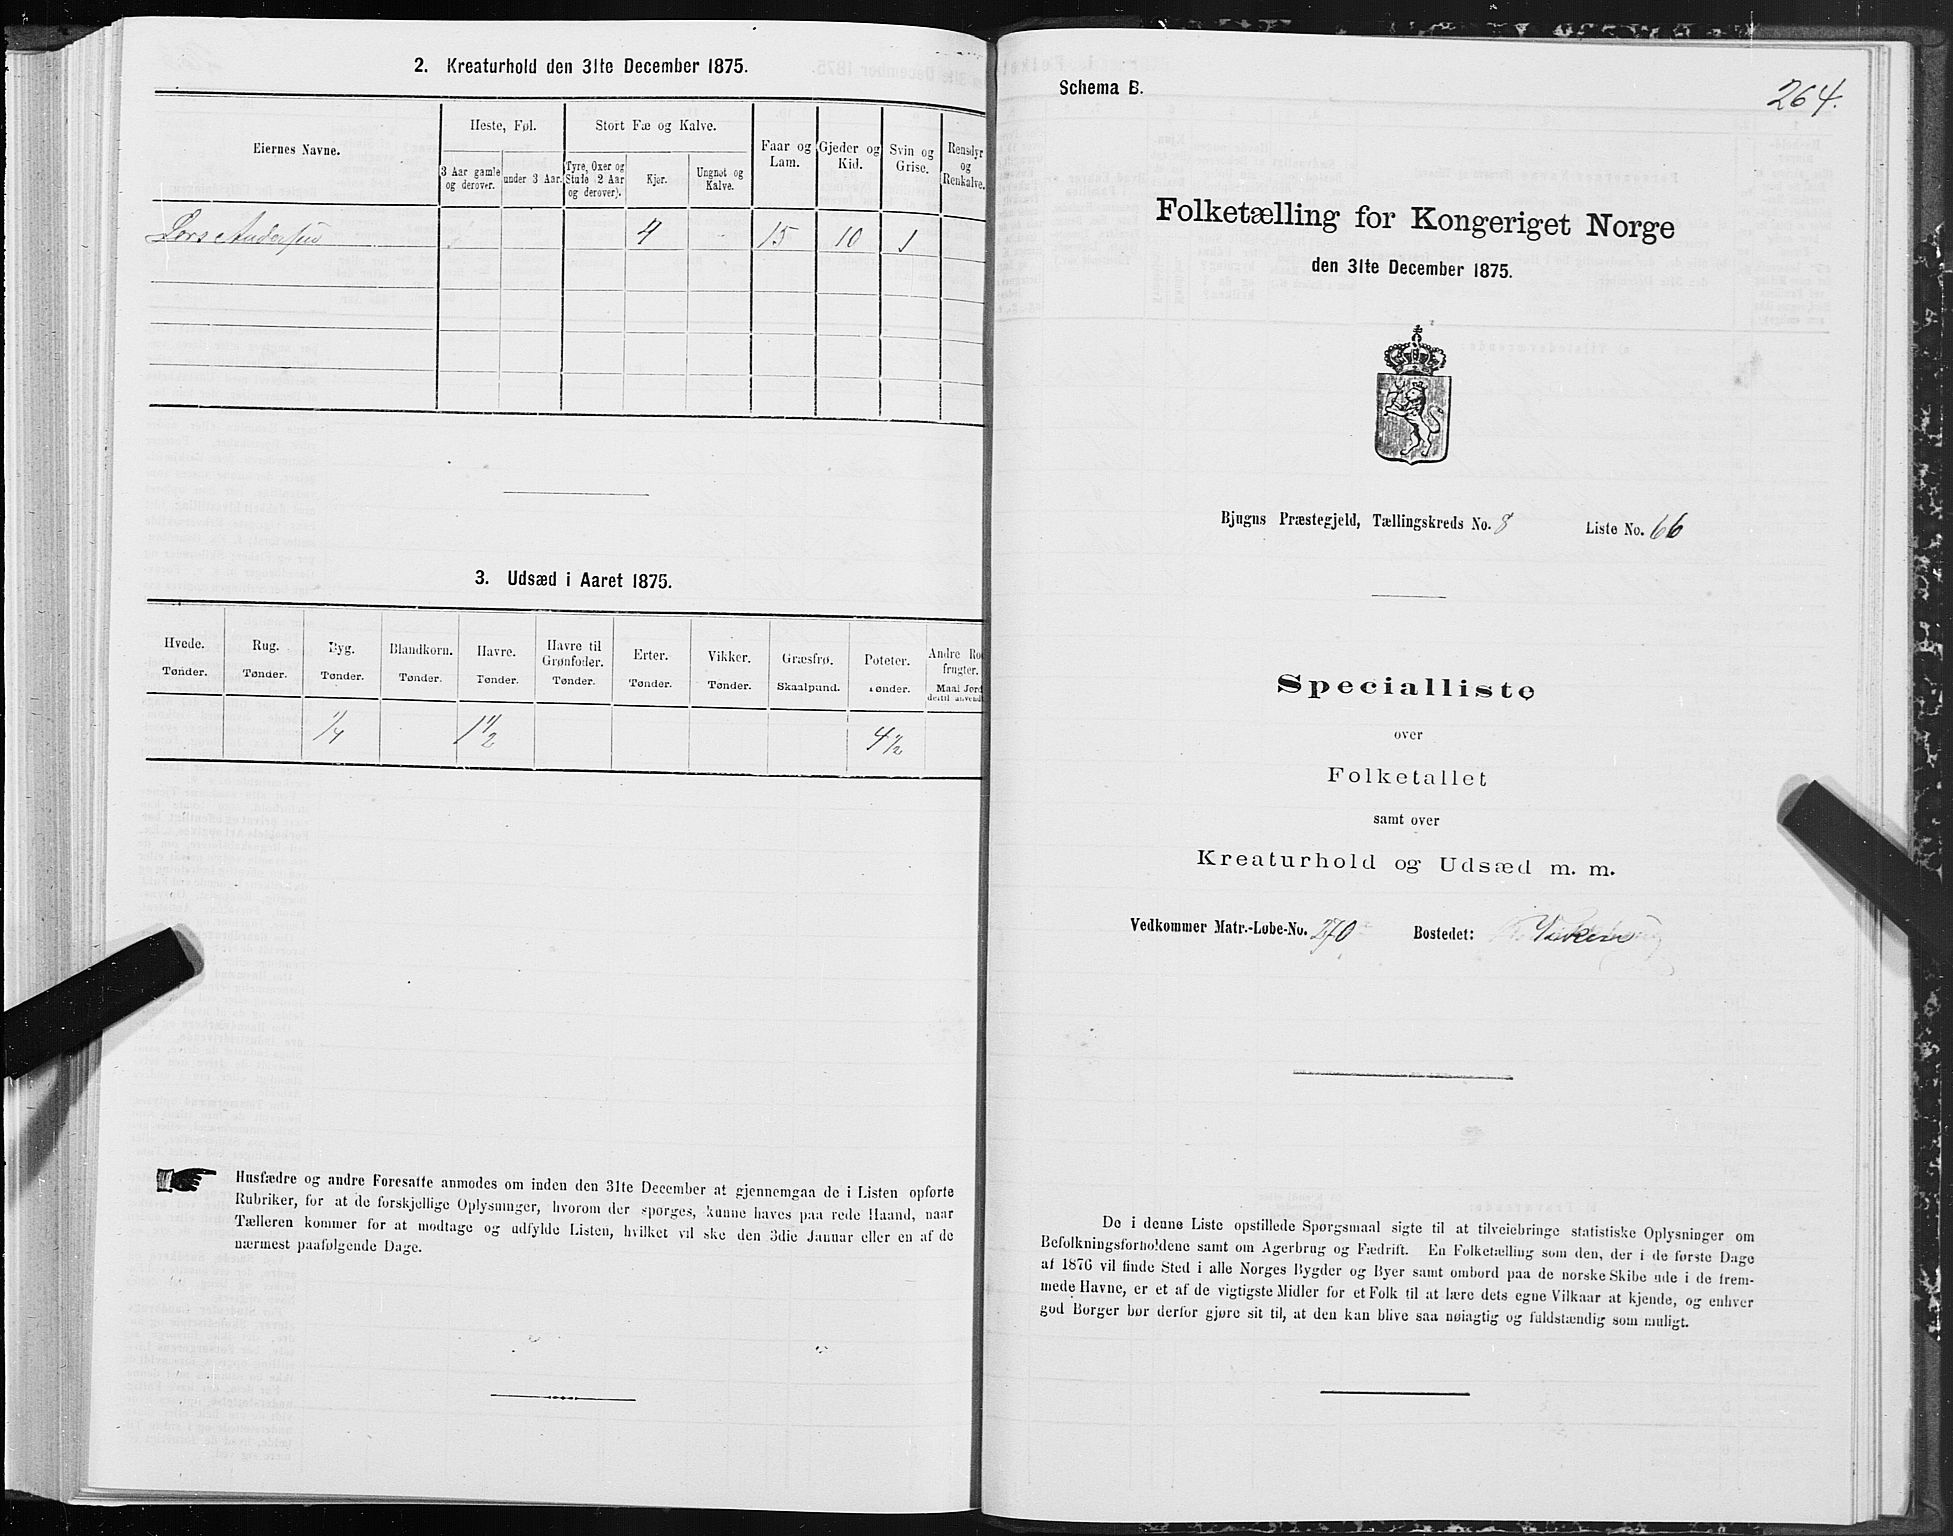 2. Kreaturhold den 31te December 1875.
Eiernes Navne.
Heste, Føl.
Stort Fæ og Kalve.
Faar og Lam.
Gjeder og Kid.
Svin og Grise.
Rensdyr og Renkalve.
3 Aar gamle og derover.
under 3 Aar.
Tyre, Oxer og Stude (2 Aar og derover).
Kjør.
Ungnøt og Kalve.
Lars Andersen 4 15 10 1
3. Udsæd i Aaret 1875.
Hvede. Tønder.
Rug. Tønder.
Byg. Tønder.
Blandkorn. Tønder.
Havre. Tønder.
Havre til Grønfoder. Tønder.
Erter. Tønder.
Vikker. Tønder.
Græsfrø. Skaalpund.
Poteter. Tønder.
Andre Rodfrugter.
Maal Jord dertil anvendt
1/4 1 1/2 4 1/2
Husfædre og andre Foresatte anmodes om inden den 31te December at gjennemgaa de i Listen opførte
Rubriker, for at de forskjellige Oplysninger, hvorom der spørges, kunne haves paa rede Haand, naar
Tælleren kommer for at modtage og udfylde Listen, hvilket vil ske den 3die Januar eller en af de
nærmest paafølgende Dage.
Schema B.
264.
Folketælling for Kongeriget Norge
den 31te December 1875.
Bjugns Præstegjeld, Tællingskreds No. 8 Liste No. 66
Specialliste
over
Folketallet
samt over
Kreaturhold og Udsæd m. m.
Vedkommer Matr.-Løbe-No. 270 Bostedet:
De i denne Liste opstillede Spørgsmaal sigte til at tilveiebringe statistiske Oplysninger om
Befolkningsforholdene samt om Agerbrug og Fædrift. En Folketælling som den, der i de første Dage
af 1876 vil finde Sted i alle Norges Bygder og Byer samt ombord paa de norske Skibe ude i de frem-
mede Havne, er et af de vigtigste Midler for et Folk til at lære dets egne Vilkaar at kjende, og enhver
god Borger bør derfor gjøre sit til, at den kan blive saa nøiagtig og fuldstændig som muligt.